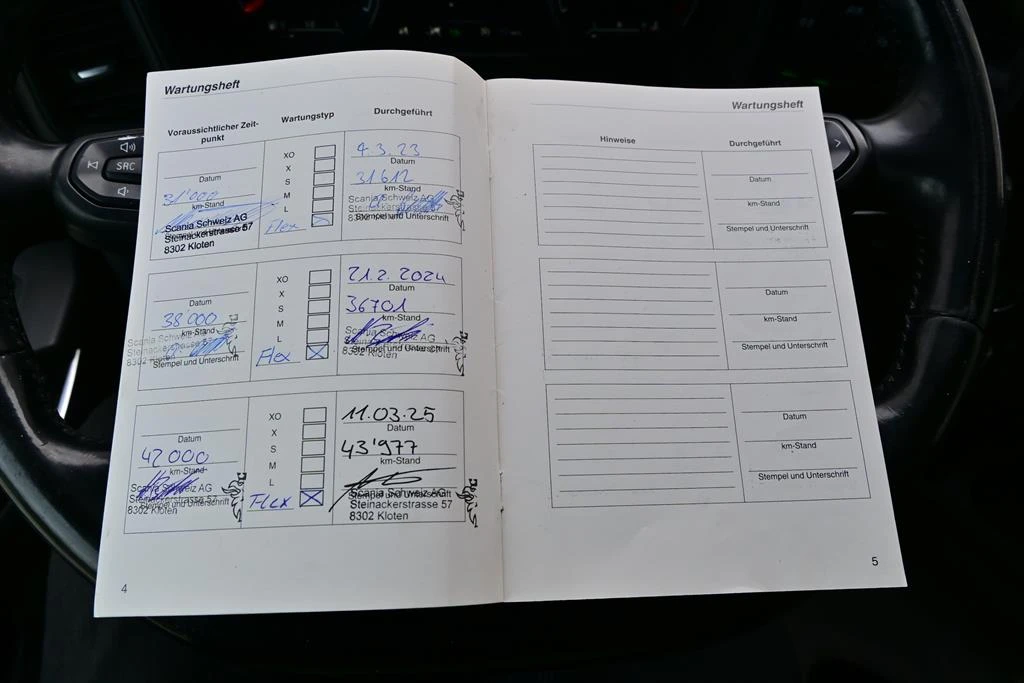 SRC
Wartungsheft
Voraussichtlicher Zeit-
punkt
Wartungstyp
Durchgeführt
Datum
31'000
km-Stand
Scania Schweiz AG
Steinackerstrasse 57
8302 Kloten
XO
X
S
M
L
Flex
4.3.23
Datum
31612
km-Stand
Scania Schweiz AG
Steinackerstrasse 57
Stempel und Unterschrift
8302 Kloten
Datum
38'000
km-Stand
Scania Schweiz AG
Stempel und Unterschrift
8302 Kloten
XO
X
S
M
L
Flex
21.2.2024
Datum
36701
km-Stand
Scania Schweiz AG
Steinackerstrasse 57
Stempel und Unterschrift
8302 Kloten
Datum
42000
km-Stand
Scania Schweiz AG
Steinackerstrasse 57
Stempel und Unterschrift
8302 Kloten
XO
X
S
M
L
FLEX
11.03.25
Datum
43'977
km-Stand
Scania Schweiz AG
Stempel und Unterschrift
Steinackerstrasse 57
8302 Kloten
4
Wartungsheft
Hinweise
Durchgeführt
Datum
km-Stand
Stempel und Unterschrift
Datum
km-Stand
Stempel und Unterschrift
Datum
km-Stand
Stempel und Unterschrift
5